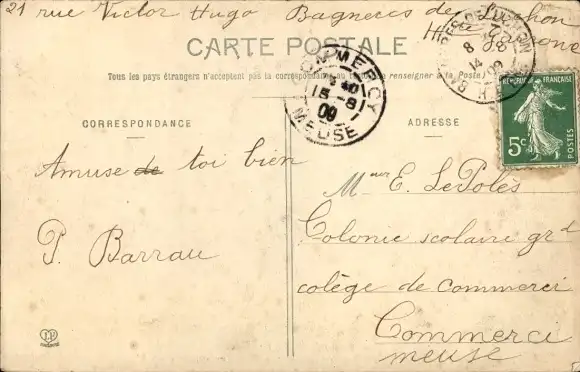 21 rue Victor Hugo Bagneres de Luchon
Hte Garonne
CARTE POSTALE
Tous les pays étrangers n'acceptent pas la correspondance au (se renseigner à la Poste)
COMMERCY
15-8
09
MEUSE
BAGNÈRES-DE-LUCHON
14 -8
09
RÉPUBLIQUE FRANÇAISE
5c
POSTES
CORRESPONDANCE
ADRESSE
Amuse de toi bien
P. Barrau
Meur E. Le Polès
Colonie scolaire grd
colège de commerci
Commerci
meuse